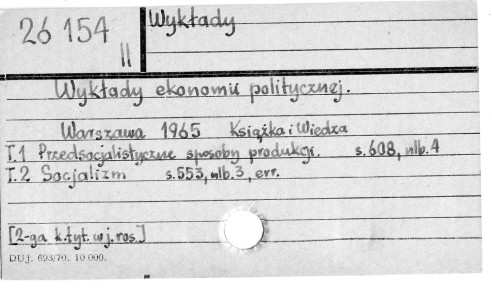 26 154
II
Wykłady
Wykłady ekonomii politycznej.
Warszawa 1965 Książka i Wiedza
T.1 Przedsocjalistyczne sposoby produkcji. s.608, nlb.4
T.2 Socjalizm s.553, nlb.3, err.
[2-ga k.tyt. w j. ros.]
DUJ. 693/70. 10 000.